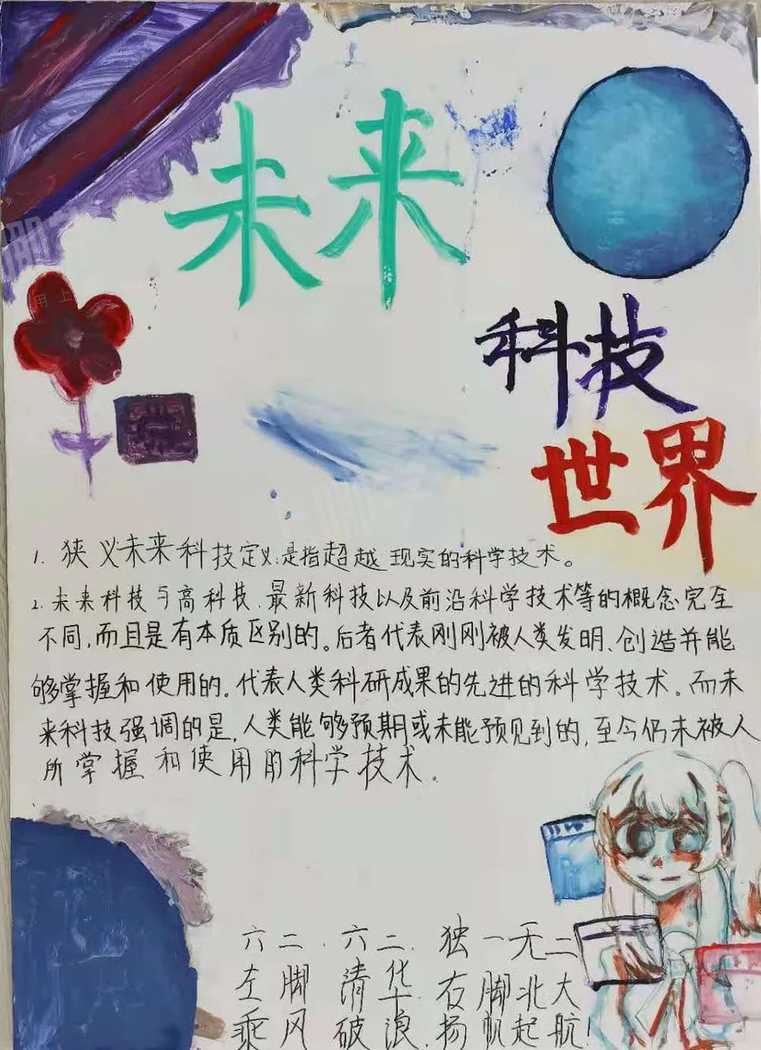 未来
科技
世界
1. 狭义未来科技定义:是指超越现实的科学技术。
2. 未来科技与高科技、最新科技以及前沿科学技术等的概念完全
不同,而且是有本质区别的。后者代表刚刚被人类发明、创造并能
够掌握和使用的。代表人类科研成果的先进的科学技术。而未
来科技强调的是,人类能够预期或未能预见到的,至今仍未被人
所掌握和使用的科学技术。
六二.六二.独一无二
左脚清华.右脚北大
乘风破浪.扬帆起航!